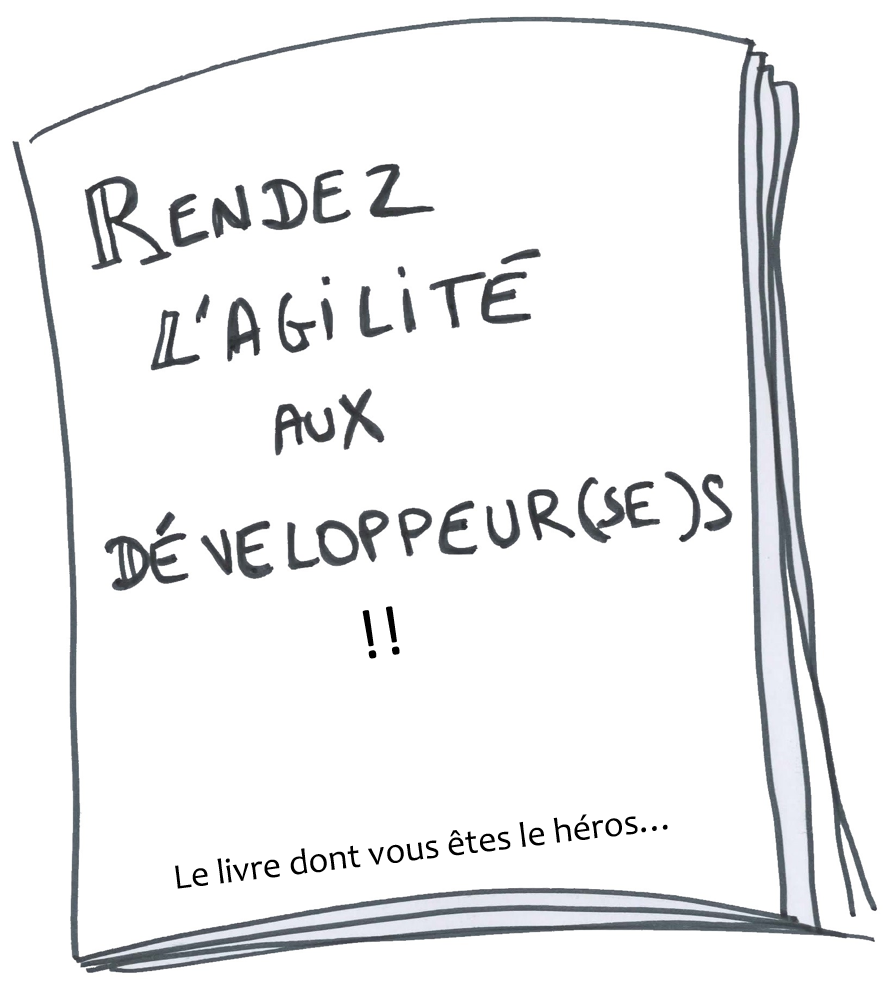 RENDEZ
L'AGILITÉ
AUX
DÉVELOPPEUR(SE)S
!!
Le livre dont vous êtes le héros...